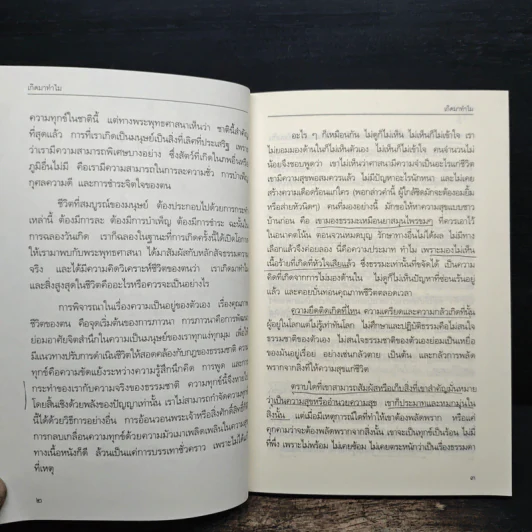 เกิดมาทำไม
ความทุกข์ในชาตินี้ แต่ทางพระพุทธศาสนาเห็นว่า ชาตินี้สำคัญ
ที่สุดแล้ว การที่เราเกิดเป็นมนุษย์เป็นสิ่งที่เลิศที่ประเสริฐ เพราะ
ว่าเรามีความสามารถพิเศษบางอย่าง ซึ่งสัตว์ที่เกิดในภพอื่นหรือ
ภูมิอื่นไม่มี คือเรามีความสามารถในการละความชั่ว การบำเพ็ญ
กุศลความดี และการชำระจิตใจของตน
ชีวิตที่สมบูรณ์ของมนุษย์ ต้องประกอบไปด้วยการกระทำ
เหล่านี้ ต้องมีการละ ต้องมีการบำเพ็ญ ต้องมีการชำระ ฉะนั้นใน
การฉลองวันเกิด เราก็ฉลองในฐานะที่การเกิดครั้งนี้ได้เปิดโอกาส
ให้เรามาพบกับพระพุทธศาสนา ได้มาสัมผัสกับหลักสัจธรรมความ
จริง และได้มีความคิดวิเคราะห์ชีวิตของตนว่า เราเกิดมาทำไม
และสิ่งสูงสุดในชีวิตคืออะไรหรือควรจะเป็นอย่างไร
การพิจารณาในเรื่องความเป็นอยู่ของตัวเอง เรื่องคุณภาพ
ชีวิตของตน คือจุดเริ่มต้นของการภาวนา การภาวนาคือการพัฒนา
ย่อมอาศัยจิตสำนึกในความเป็นมนุษย์ของเราทุกแง่ทุกมุม เพื่อให้
มีแนวทางปรับการดำเนินชีวิตให้สอดคล้องกับกฎของธรรมชาติ ความ
ทุกข์คือความขัดแย้งระหว่างความรู้สึกนึกคิด การพูด และการ
กระทำของเรากับความจริงของธรรมชาติ ความทุกข์นี้จึงหาย
โดยสิ้นเชิงด้วยพลังของปัญญาเท่านั้น เราไม่สามารถกำจัดความทุกข์
นี้ได้ด้วยวิธีการอย่างอื่น การอ้อนวอนพระเจ้าหรือสิ่งศักดิ์สิทธิ์
การกลบเกลื่อนความทุกข์ด้วยความมัวเมาเพลิดเพลินในความสุข
ทางเนื้อหนังก็ดี ล้วนเป็นแต่การบรรเทาชั่วคราว เพราะไม่ได้แก้
ที่เหตุ
๒
เกิดมาทำไม
อะไร ๆ ก็เหมือนกัน ไม่ดูก็ไม่เห็น ไม่เห็นก็ไม่เข้าใจ เรา
ไม่ยอมมองด้านในก็ไม่เห็นตัวเอง ไม่เห็นก็ไม่เข้าใจ คนจำนวนไม่
น้อยจึงชอบพูดว่า เขาไม่เห็นว่าศาสนามีความจำเป็นอะไรแก่ชีวิต
เขามีความสุขพอสมควรแล้ว ไม่มีปัญหาอะไรนักหนา และไม่เคย
สร้างความเดือดร้อนแก่ใคร (พอกล่าวคำนี้ ผู้ใกล้ชิดมักจะต้องอมยิ้ม
หรือส่ายหัวนิดๆ) คนที่มองอย่างนี้ มักขอให้หาความสุขแบบชาว
บ้านก่อน คือ เขามองธรรมะเหมือนยาสมุนไพรขมๆ ที่ควรเอาไว้
ในอนาคตโน้น ตอนจวนหมดบุญ รักษาทางอื่นไม่ได้ผล ไม่มีทาง
เลือกแล้วจึงค่อยลอง นี่คือความประมาท ทำไม เพราะมองไม่เห็น
เนื้อร้ายที่เกิดที่หัวใจเสียแล้ว ซึ่งธรรมะเท่านั้นที่ขจัดได้ เป็นความ
คิดที่เกิดจากการไม่มองด้านใน ไม่ดูก็ไม่เห็นปัญหาที่ซ่อนเร้นอยู่
แล้ว และคอยบั่นทอนคุณภาพชีวิตตลอดเวลา
ความยึดติดเกิดที่ไหน ความเครียดและความกลัวเกิดที่นั้น
ผู้อยู่ในโลกแต่ไม่รู้เท่าทันโลก ไม่ศึกษาและปฏิบัติธรรมคือไม่สนใจ
ธรรมชาติของตัวเอง ไม่สนใจธรรมชาติของตัวเองย่อมเป็นเหยื่อ
ของมันอยู่เรื่อย อย่างเช่นกลัวตาย เป็นต้น และกลัวการพลัด
พรากจากสิ่งที่ให้ความสุขแก่ชีวิต
ตราบใดที่เขาสามารถสัมผัสหรือเก็บสิ่งที่เขาสำคัญมั่นหมาย
ว่าเป็นความสุขหรืออำนวยความสุข เขาก็ประมาทและหมกมุ่นใน
สิ่งนั้น แต่เมื่อมีเหตุการณ์ใดที่ทำให้เขาต้องพลัดพราก หรือแค่
คุกคามว่าจะต้องพลัดพรากจากสิ่งนั้น เขาจะเป็นทุกข์เป็นร้อน ไม่มี
ที่พึ่ง เพราะไม่พร้อม ไม่เคยซ้อม ไม่เคยตระหนักว่าเป็นเรื่องธรรมดา
๓